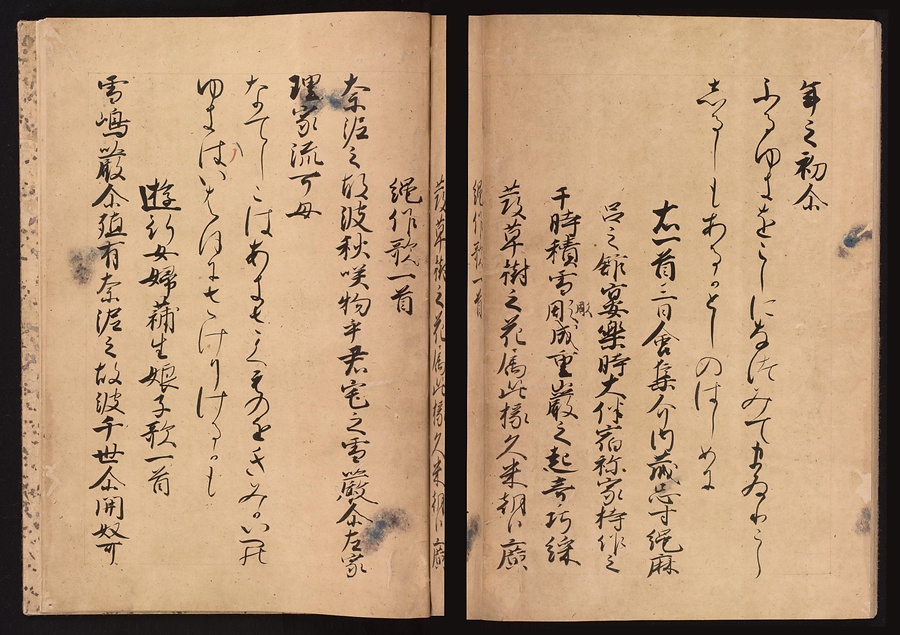 年之初尓
ふるゆきをこしになつみてまゐりこし
しるしもあるかとしのはしめに
右一首三日會集介内蔵忌寸縄麻
呂之舘宴樂時大伴宿祢家持作之
于時積雪彫成重巌之起奇巧綵
發草樹之花属此掾久米朝臣廣
縄作歌一首
奈泥之故波秋咲物乎君宅之雪巌尓左家
理家流可母
なてしこはあきさくものをきみかいへの
ゆきはいはほにさけりけるかも
遊行女婦蒲生娘子歌一首
雪嶋巌尓殖有奈泥之故波千世尓開奴可